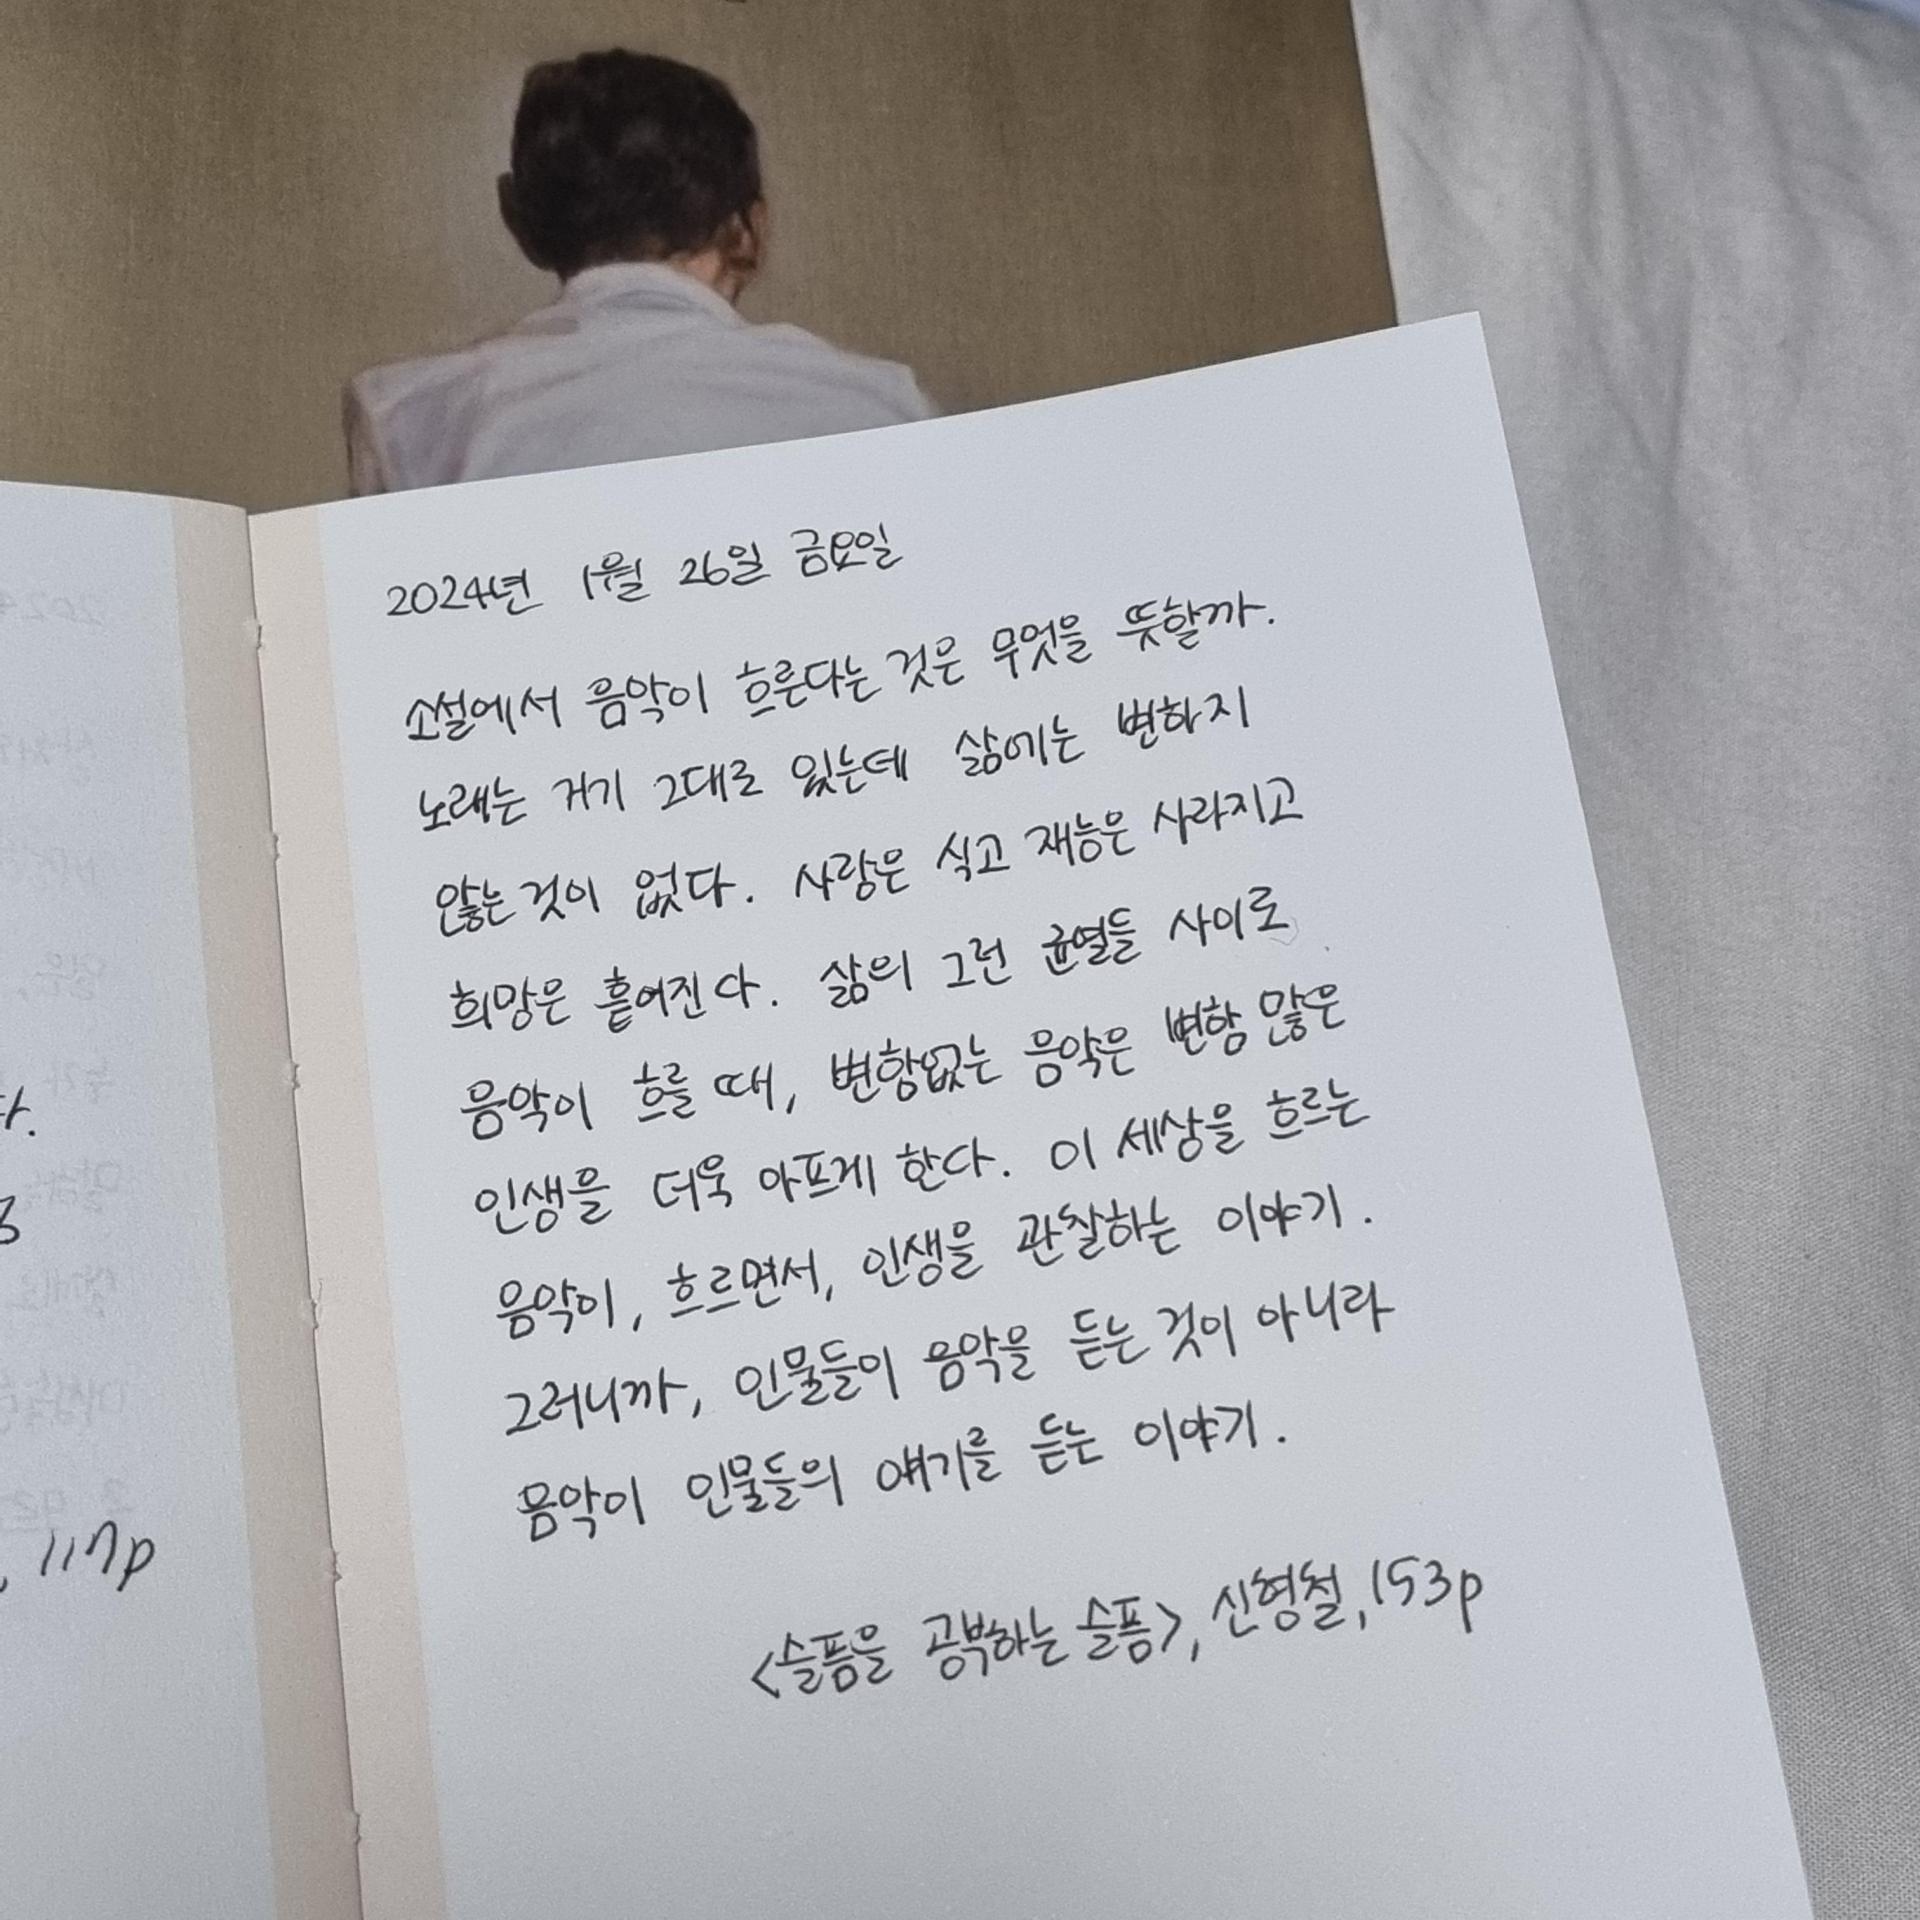 2024년 1월 26일 금요일
소설에서 음악이 흐른다는 것은 무엇을 뜻할까.
노래는 거기 그대로 있는데 삶에는 변하지
않는 것이 없다. 사랑은 식고 재능은 사라지고
희망은 흩어진다. 삶의 그런 균열들 사이로
음악이 흐를 때, 변함없는 음악은 변함 많은
인생을 더욱 아프게 한다. 이 세상을 흐르는
음악이, 흐르면서, 인생을 관찰하는 이야기.
그러니까, 인물들이 음악을 듣는 것이 아니라
음악이 인물들의 얘기를 듣는 이야기.
<슬픔을 공부하는 슬픔>, 신형철, 153p
, 117p